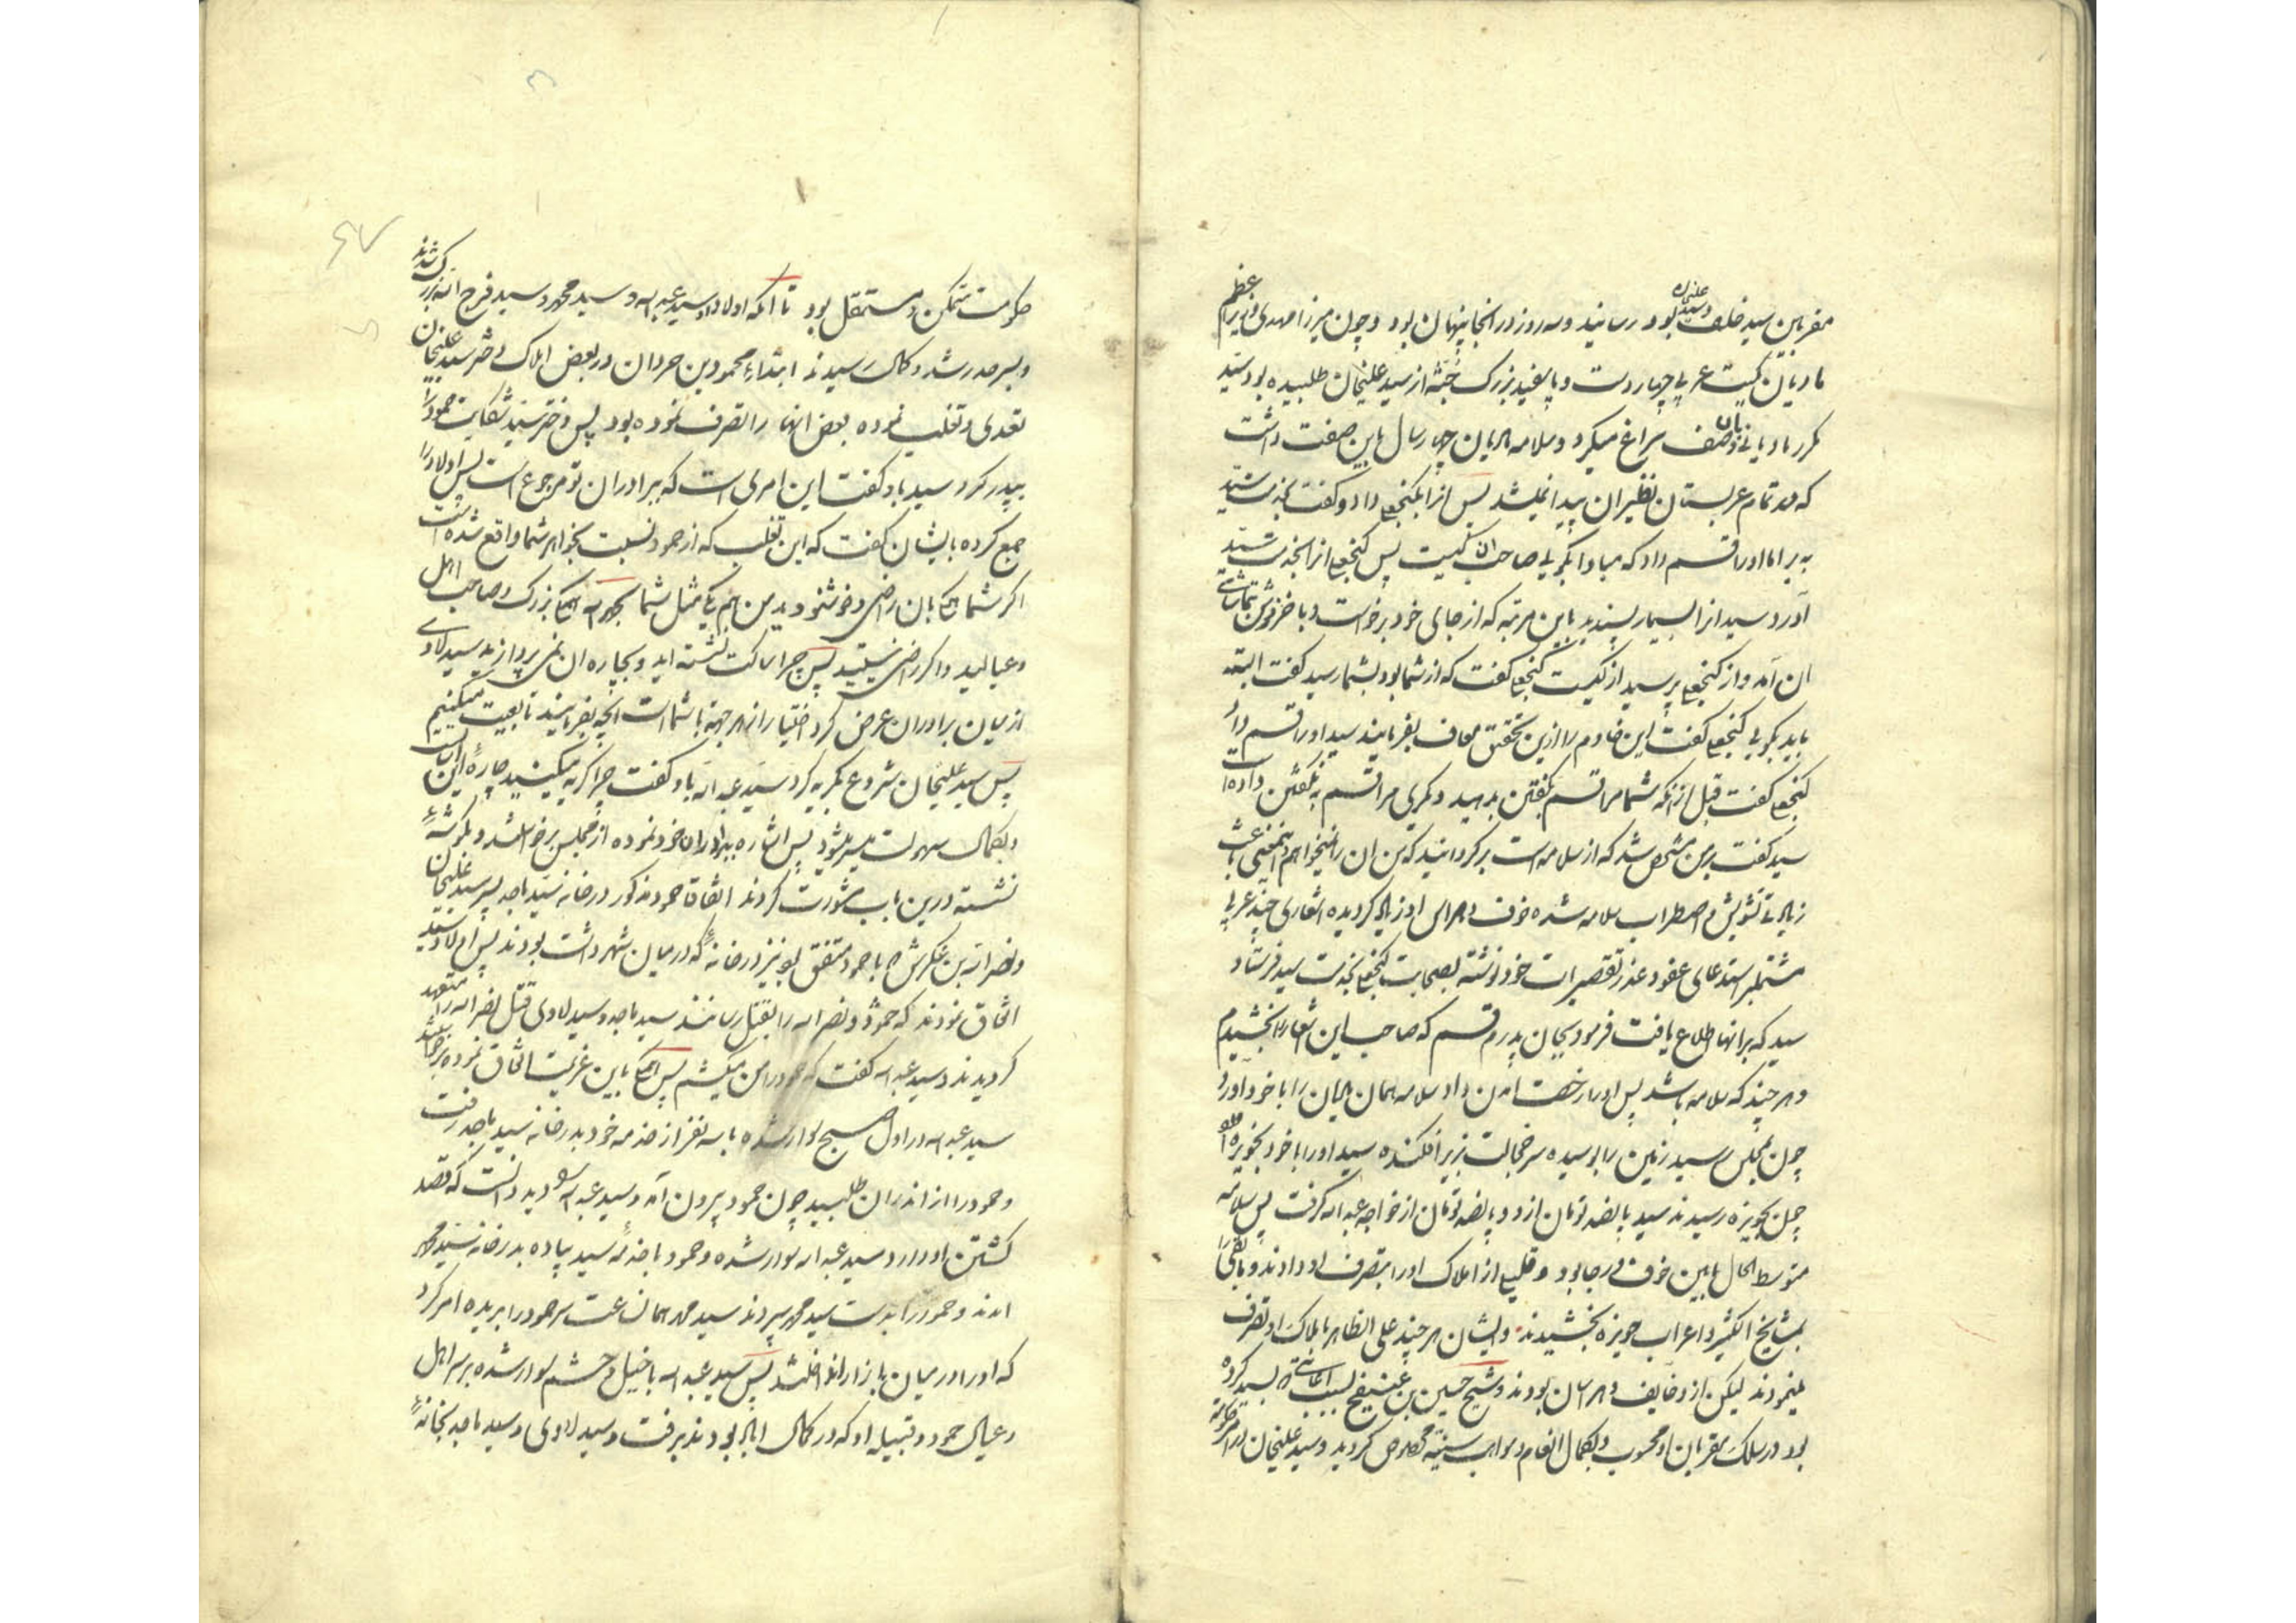 مقربین سید خلف و سید علیخان بود رسانید و سه روز در انجا پنهان بود و چون میرزا مهدی وزیر اعظم
مادیان کمیت عربی چهار دست و پا سفید بزرک جثه از سید علیخان طلبیده بود سید
مکرر مادیانی بان وصف سراغ میکرد و سلامه مادیان چهار سال باین صفت داشت
که در تمام عربستان نظیر ان پیدا نمیشد پس انرا بکنجعلی داد و گفت بخدمت سید
ببر اما او را قسم داد که مبادا بگویی صاحب ان کیست پس کنجعلی انرا بخدمت سید
آورد و سید انرا بسیار پسندید باین مرتبه که از جای خود برخواست و با خز و فوش بتماشای
ان آمد و از کنجعلی پرسید از کیست کنجعلی گفت که از شما بود بشما رسید گفت البته
باید بگویی کنجعلی گفت این خادم را ازین تحقیق معاف بفرمایند سید او را قسم داد
کنجعلی گفت قبل ازانکه شما مرا قسم بگفتن بدهید دیگری مرا قسم به نگفتن داده است
سید گفت بر من مشخص شد که از سلامه است برگردانید که من ان را نمیخواهم اینمعنی باعث
زیادتی تشویش و اضطراب سلامه شده خوف و هراس او زیاد گردیده اشعاری چند عربی
مشتملبر استدعای عفو و عذر تقصیرات خود نوشته بصحابت کنجعلی بخدمت سید فرستاد
سید که بر انها اطلاع یافت فرمود بجان پدرم قسم که صاحب این اشعار را بخشیدم
و هر چند که سلامه باشد پس او را رخصت آمدن داد سلامه همان مادیان را با خود آورد
چون بمجلس رسید زمین را بوسیده سر خجالت بزیر افکنده سید او را با خود بحویزه
چون بحویزه رسیدند سید پانصد تومان از او و پانصد تومان از خواجه عبد الله گرفت پس سلامه
متوسط الحال مابین خوف و رجا بود و قلیلی از املاک او را بتصرف او دادند و باقی را
بمشایخ الکثیر و اعراب حویزه بخشیدند و ایشان هر چند علی الظاهر باملاک او تصرف
مینمودند لیکن ازو خایف و هراسان بودند و شیخ حسین بن بسبب اعانتی که بسید کرده
بود در سلک مقربان او محسوب و بکمال انعام و مواهب سنیه مخصوص گردید و سید علیخان در امر حکومت
حکومت متمکن و مستقل بود تا انکه اولاد او سید عبد الله و سید محمد و سید فرج الله بزرک شدند
و بسر حد رشد و کمال رسیدند ابتداء محمود بن حردان در بعض املاک دختر سید علیخان
تعدی و تغلب نموده بعض انها را تصرف نموده بود پس دختر سید شکایت حمود را
بپدر کرد سید باو گفت این امری است که ببرادران تو مرجوع است پس اولاد را
جمع کرده بایشان گفت که این تغلب که از حمود نسبت بخواهر شما واقع شده است
اگر شماها بان راضی و خوشنودید من هم یکی مثل شما بحمد الله همگی بزرک و صاحب اهل
و عیالید و اگر راضی نیستید پس چرا ساکت نشسته اید و بچاره ان نمی پردازید سید هادی
از میان برادران عرض کرد اختیار از هر جهة با شما است انچه بفرمایند تابعیت میکنیم
پس سید علیخان شروع بگریه کرد سید عبد الله باو گفت چرا گریه میکنید چارۀ این
و بکمال سهولت میسر میشود پس اشاره ببرادران خود نموده از مجلس برخواستند و بگوشۀ
نشسته درین باب مشورت کردند اتفاقا حمود مذکور در خانه سید ماجد پسر سید علیخان
و نصر الله بن عکرش با حمود متفق بود نیز در خانۀ که در میان شهر داشت بودند پس اولاد سید
اتفاق نمودند که حمود و نصر الله را بقتل رسانند سید ماجد و سید هادی قتل نصر الله را متعهد
گردیدند و سید عبد الله گفت که حمود را من میکشم پس همگی باین عزیمت اتفاق نموده برخاستند
سید عبد الله در اول صبح سوار شده با سه نفر از خدمه خود بدر خانه سید ماجد رفت
و حمود را از اندران طلبید چون حمود بیرون آمد و سید عبد الله را سوار دید دانست که قصد
کشتن او دارد سید عبد الله سوار شده و حمود با خدمه سید پیاده بدر خانه سید محمد
امدند و حمود را بدست سید محمد سپردند سید محمد همان ساعت سر حمود را بریده امر کرد
که او را در میان بازار انداختند پس سید عبد الله با خیل و حشم سوار شده بر سر اهل
و عیال حمود و قبیله او که در کمال بودند برفت و سید هادی و سید ماجد بخانۀ